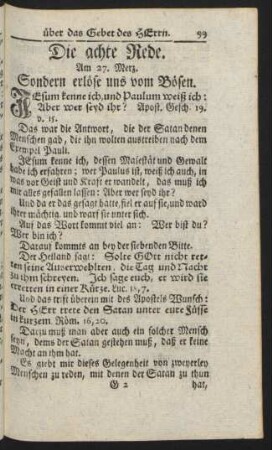 über das Gebet des HErrn. 99
Die achte Rede.
Am 27. Merz.
Sondern erlöse uns vom Bösen.
JEsum kenne ich, und Paulum weiß ich:
Aber wer seyd ihr? Apost. Gesch. 19.
v. 15.
Das war die Antwort, die der Satan denen
Menschen gab, die ihn wolten austreiben nach dem
Exempel Pauli.
JEsum kenne ich, dessen Majestät und Gewalt
habe ich erfahren; wer Paulus ist, weiß ich auch, in
was vor Geist und Kraft er wandelt, das muß ich
mir alles gefallen lassen: Aber wer seyd ihr?
Und da er das gesagt hatte, fiel er auf sie, und ward
ihrer mächtig, und warf sie unter sich.
Auf das Wort kommt viel an: Wer bist du?
Wer bin ich?
Darauf kommts an bey der siebenden Bitte.
Der Heiland sagt: Solte GOtt nicht ret-
ten seine Auserwehlten, die Tag und Nacht
zu ihm schreyen. Ich sage euch, er wird sie
erretten in einer Kürze. Luc. 18, 7.
Und das trift überein mit des Apostels Wunsch:
Der HErr trete den Satan unter eure Füsse
in kurzem. Röm. 16, 20.
Darzu muß man aber auch ein solcher Mensch
seyn, dems der Satan gestehen muß, daß er keine
Macht an ihm hat.
Es giebt mir dieses Gelegenheit von zweyerley
Menschen zu reden, mit denen der Satan zu thun
G 2 hat,